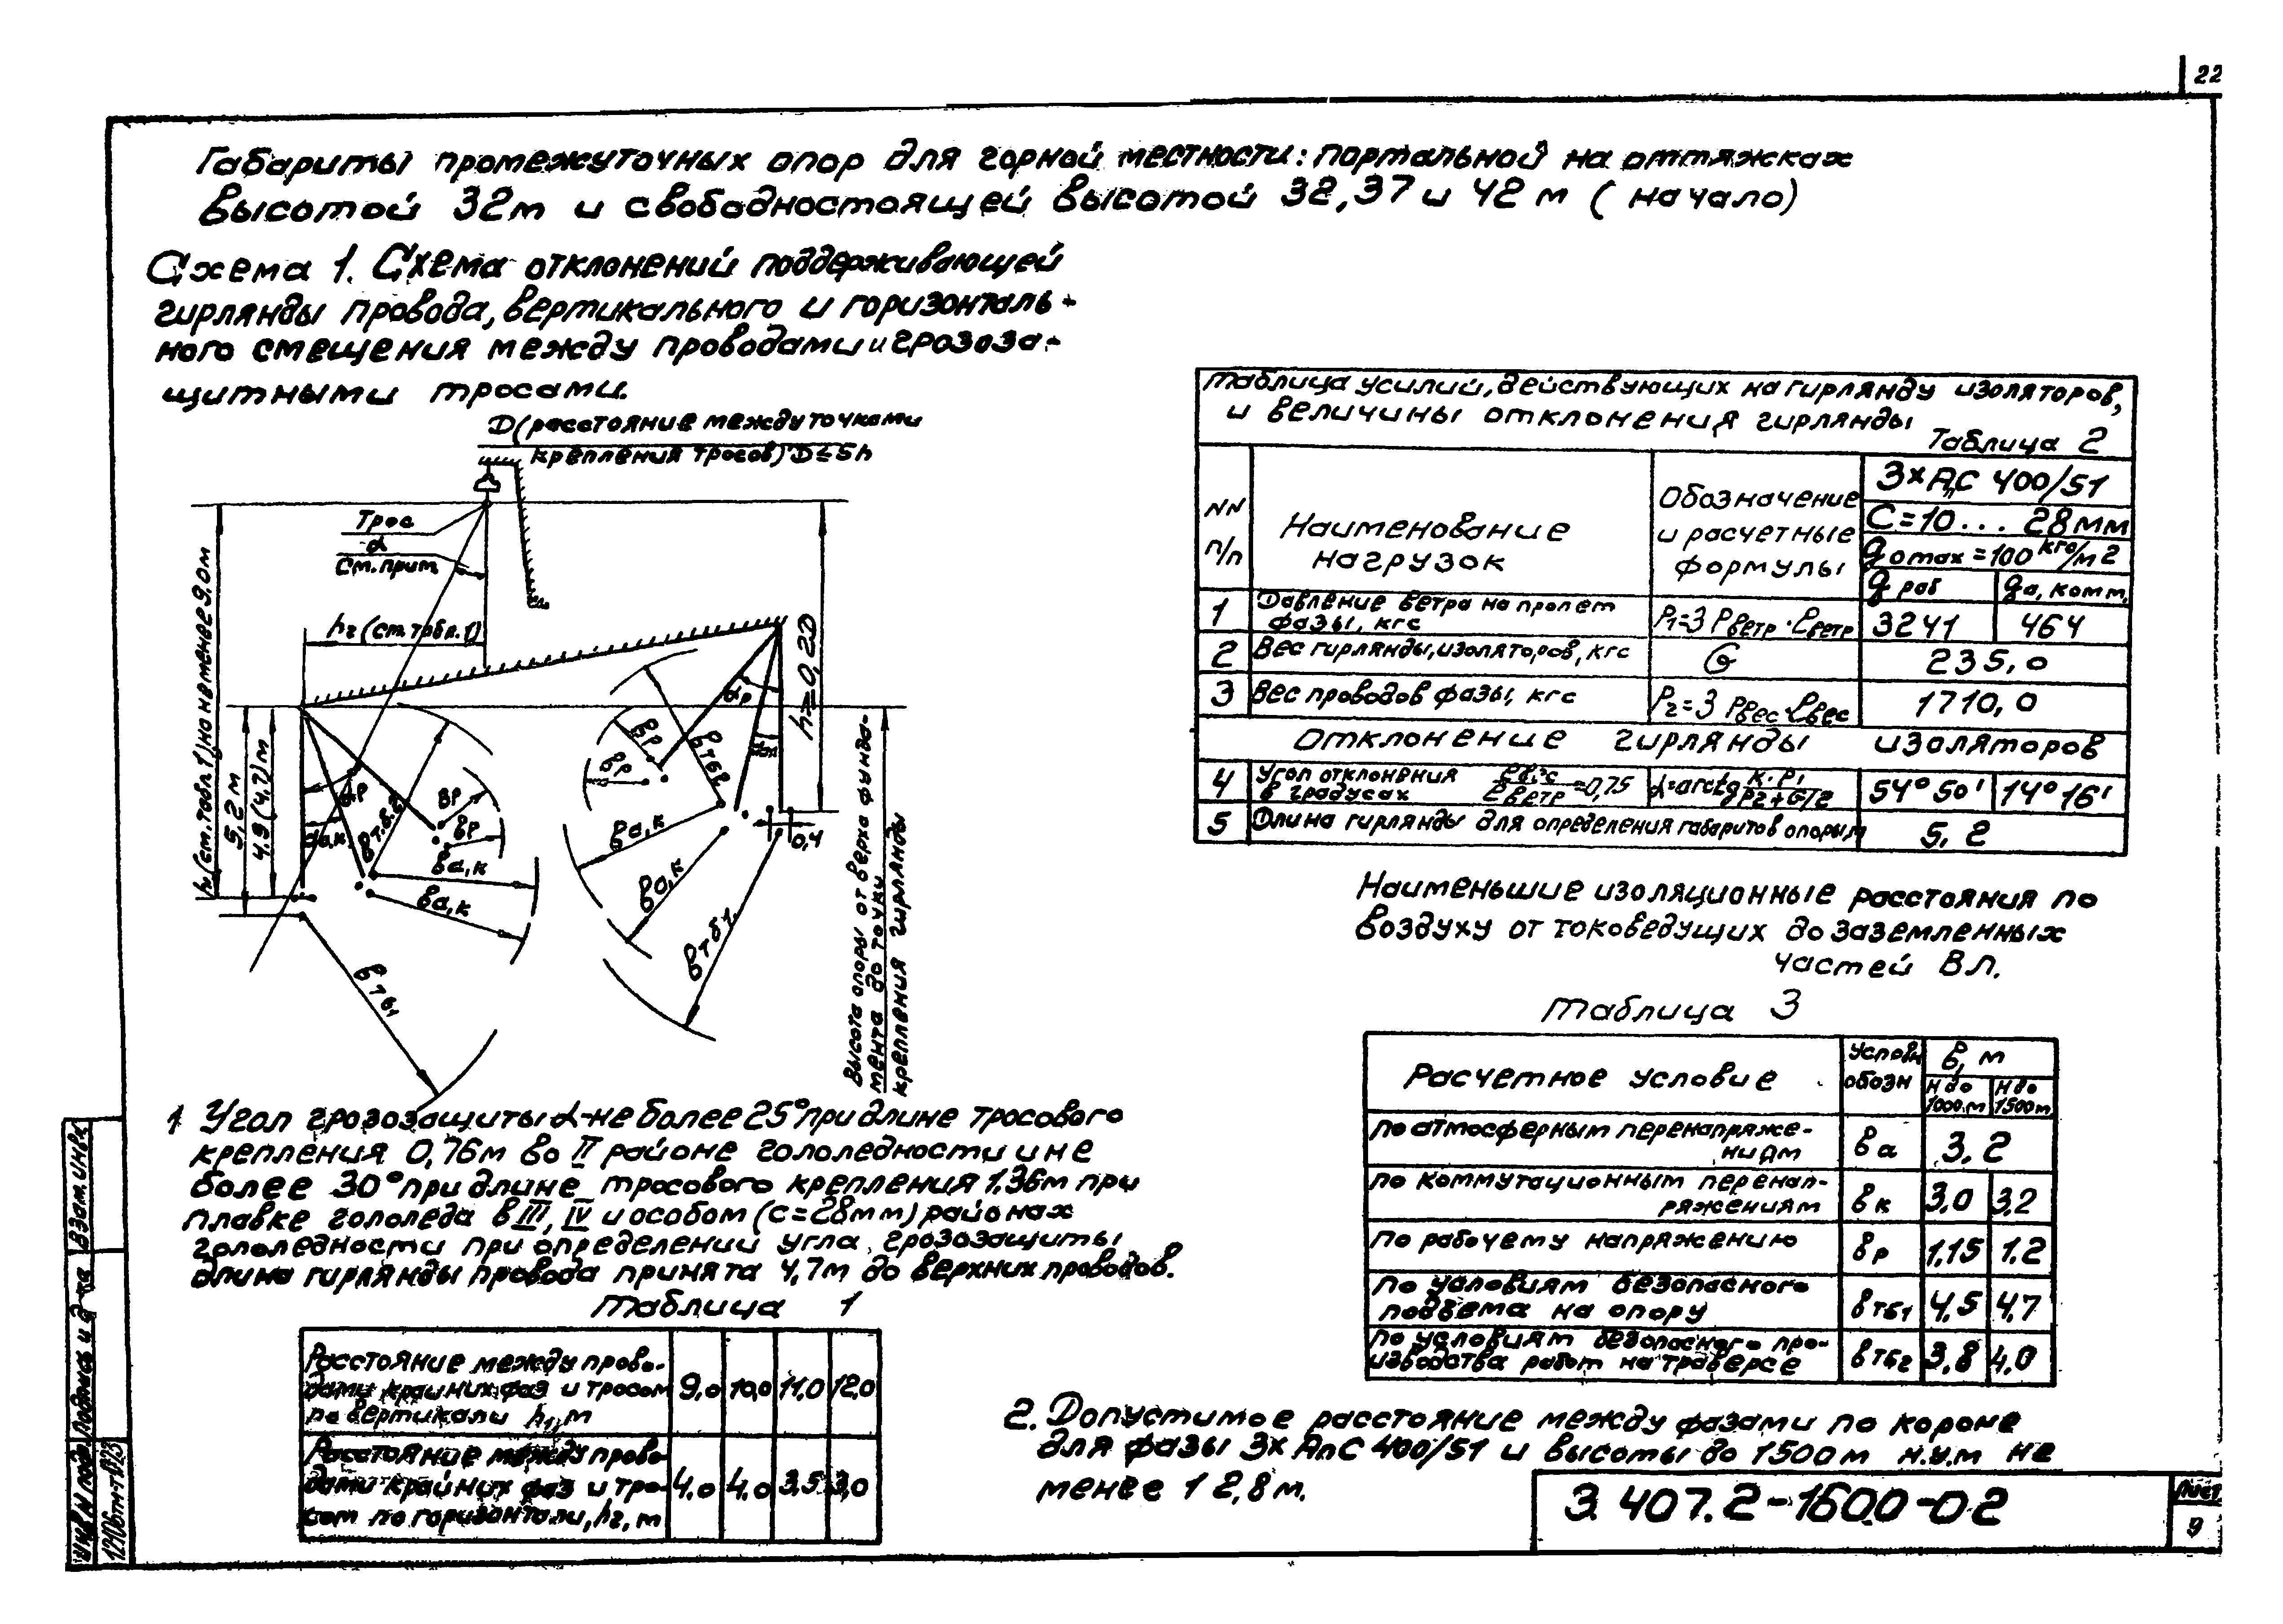 22
Габариты промежуточных опор для горной местности: портальной на оттяжках
высотой 32м и свободностоящей высотой 32, 37 и 42 м (начало)
Схема 1. Схема отклонений поддерживающей
гирлянды провода, вертикального и горизонталь-
ного смещения между проводами и грозоза-
щитными тросами.
D(расстояние между точками
крепления тросов) D≤5h
Трос
α
См. прим.
h2 (см. табл. 1)
h1 (см. табл. 1) но не менее 9.0м
5,2 м
4.9 (4,7) м
αр
αа,к
вт.б.2
вр
вр
ва,к
ва,к
втб1
αр
вр
вр
втб2
ва,к
ва,к
втб1
0,4
h≥0,2D
Высота опоры от верха фунда-
мента до точки
крепления гирлянды
1 Угол грозозащиты α-не более 25° при длине тросового
крепления 0,76м во II районе гололедности и не
более 30° при длине тросового крепления 1,36м при
плавке гололеда в III, IV и особом (с=28мм) районах
гололедности при определении угла грозозащиты
длина гирлянды провода принята 4,7м до верхних проводов.
Таблица 1
Расстояние между прово-
дами крайних фаз и тросом
по вертикали h1, м
9,0 10,0 11,0 12,0
Расстояние между прово-
дами крайних фаз и тро-
сом по горизонтали, h2, м
4,0 4,0 3,5 3,0
Таблица усилий, действующих на гирлянду изоляторов,
и величины отклонения гирлянды
Таблица 2
NN п/п
Наименование нагрузок
Обозначение и расчетные формулы
3×АС 400/51
С=10... 28мм
qоmax=100 кгс/м2
q раб qа, комм.
1 Давление ветра на пролет фазы, кгс P1=3 Pветр·ℓветр 3241 464
2 Вес гирлянды, изоляторов, кгс G 235,0
3 Вес проводов фазы, кгс P2=3 Pвес·ℓвес 1710,0
Отклонение гирлянды изоляторов
4 Угол отклонения в градусах ℓвес/ℓветр=0,75 α=arctg K·P1/P2+G/2 54°50' 14°16'
5 Длина гирлянды для определения габаритов опоры, м 5,2
Наименьшие изоляционные расстояния по
воздуху от токоведущих до заземленных
частей ВЛ.
Таблица 3
Расчетное условие
Условн обозн
в, м
Н до 1000м Н до 1500м
По атмосферным перенапряже-
ниям ва 3,2
По коммутационным перенап-
ряжениям вк 3,0 3,2
По рабочему напряжению вр 1,15 1,2
По условиям безопасного
подъема на опору втб1 4,5 4,7
По условиям безопасного про-
изводства работ на траверсе втб2 3,8 4,0
2. Допустимое расстояние между фазами по короне
для фазы 3× АпС 400/51 и высоты до 1500м н.у.м не
менее 12,8м.
3.407.2-160.0-02
Лист
9
Инв N подл.
Подпись и дата
Взам. инв.
12406тм-т1